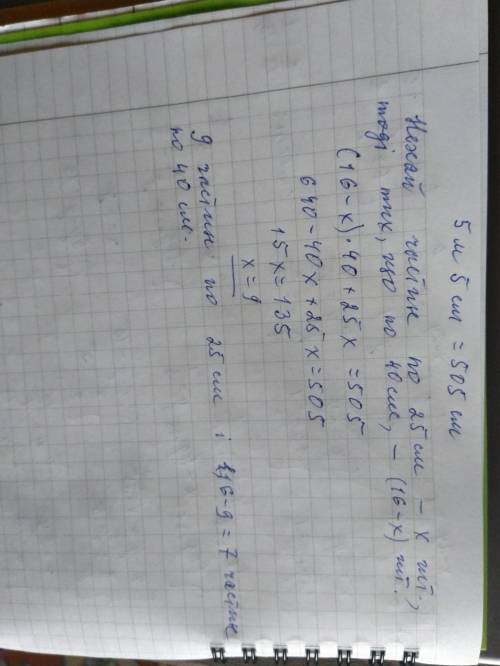 5 м 5 см = 505 см
Нехай частин по 25 см - х шт.,
тоді тих, що по 40 см, - (16-х) шт.
(16-х)·40+25х=505
640-40х+25х=505
15х=135
х=9
9 частин по 25 см і 16-9=7 частин
по 40 см.